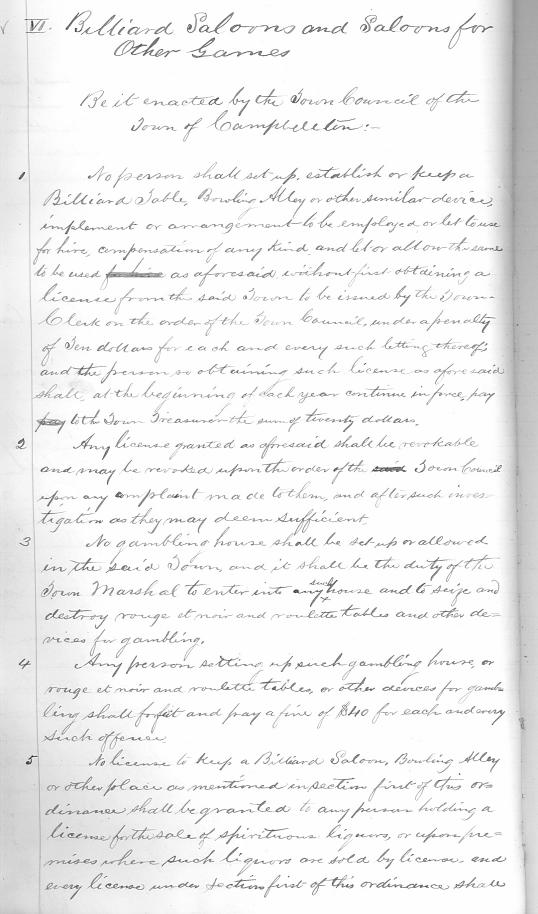 VI. Billiard Saloons and Saloons for
Other Games
Be it enacted by the Town Council of the
Town of Campbellton:-
1 No person shall set up, establish or keep a
Billiard Table, Bowling Alley or other similar device,
implement or arrangement to be employed or let to use
for hire, compensation of any kind and let or allow the same
to be used for hire as aforesaid without first obtaining a
license from the said Town to be issued by the Town
Clerk on the order of the Town Council, under a penalty
of Ten dollars for each and every such letting thereof;
and the person so obtaining such license as aforesaid
shall, at the beginning of each year continue in force, pay
pay to the Town Treasurer the sum of twenty dollars.
2 Any license granted as aforesaid shall be revokable
and may be revoked upon the order of the said Town Council
upon any complaint made to them, and after such inves-
tigation as they may deem sufficient.
3 No gambling house shall be set up or allowed
in the said Town, and it shall be the duty of the
Town Marshal to enter into any such house and to seize and
destroy rouge et noir and roulette tables and other de-
vices for gambling.
4 Any person setting up such gambling house, or
rouge et noir and roulette tables, or other devices for gamb-
ling shall forfeit and pay a fine of $40 for each and every
such offence.
5 No license to keep a Billiard Saloon, Bowling Alley
or other place as mentioned in section first of this or-
dinance shall be granted to any person holding a
license for the sale of spirituous liquors, or upon pre-
mises where such liquors are sold by license and
every license under section first of this ordinance shall